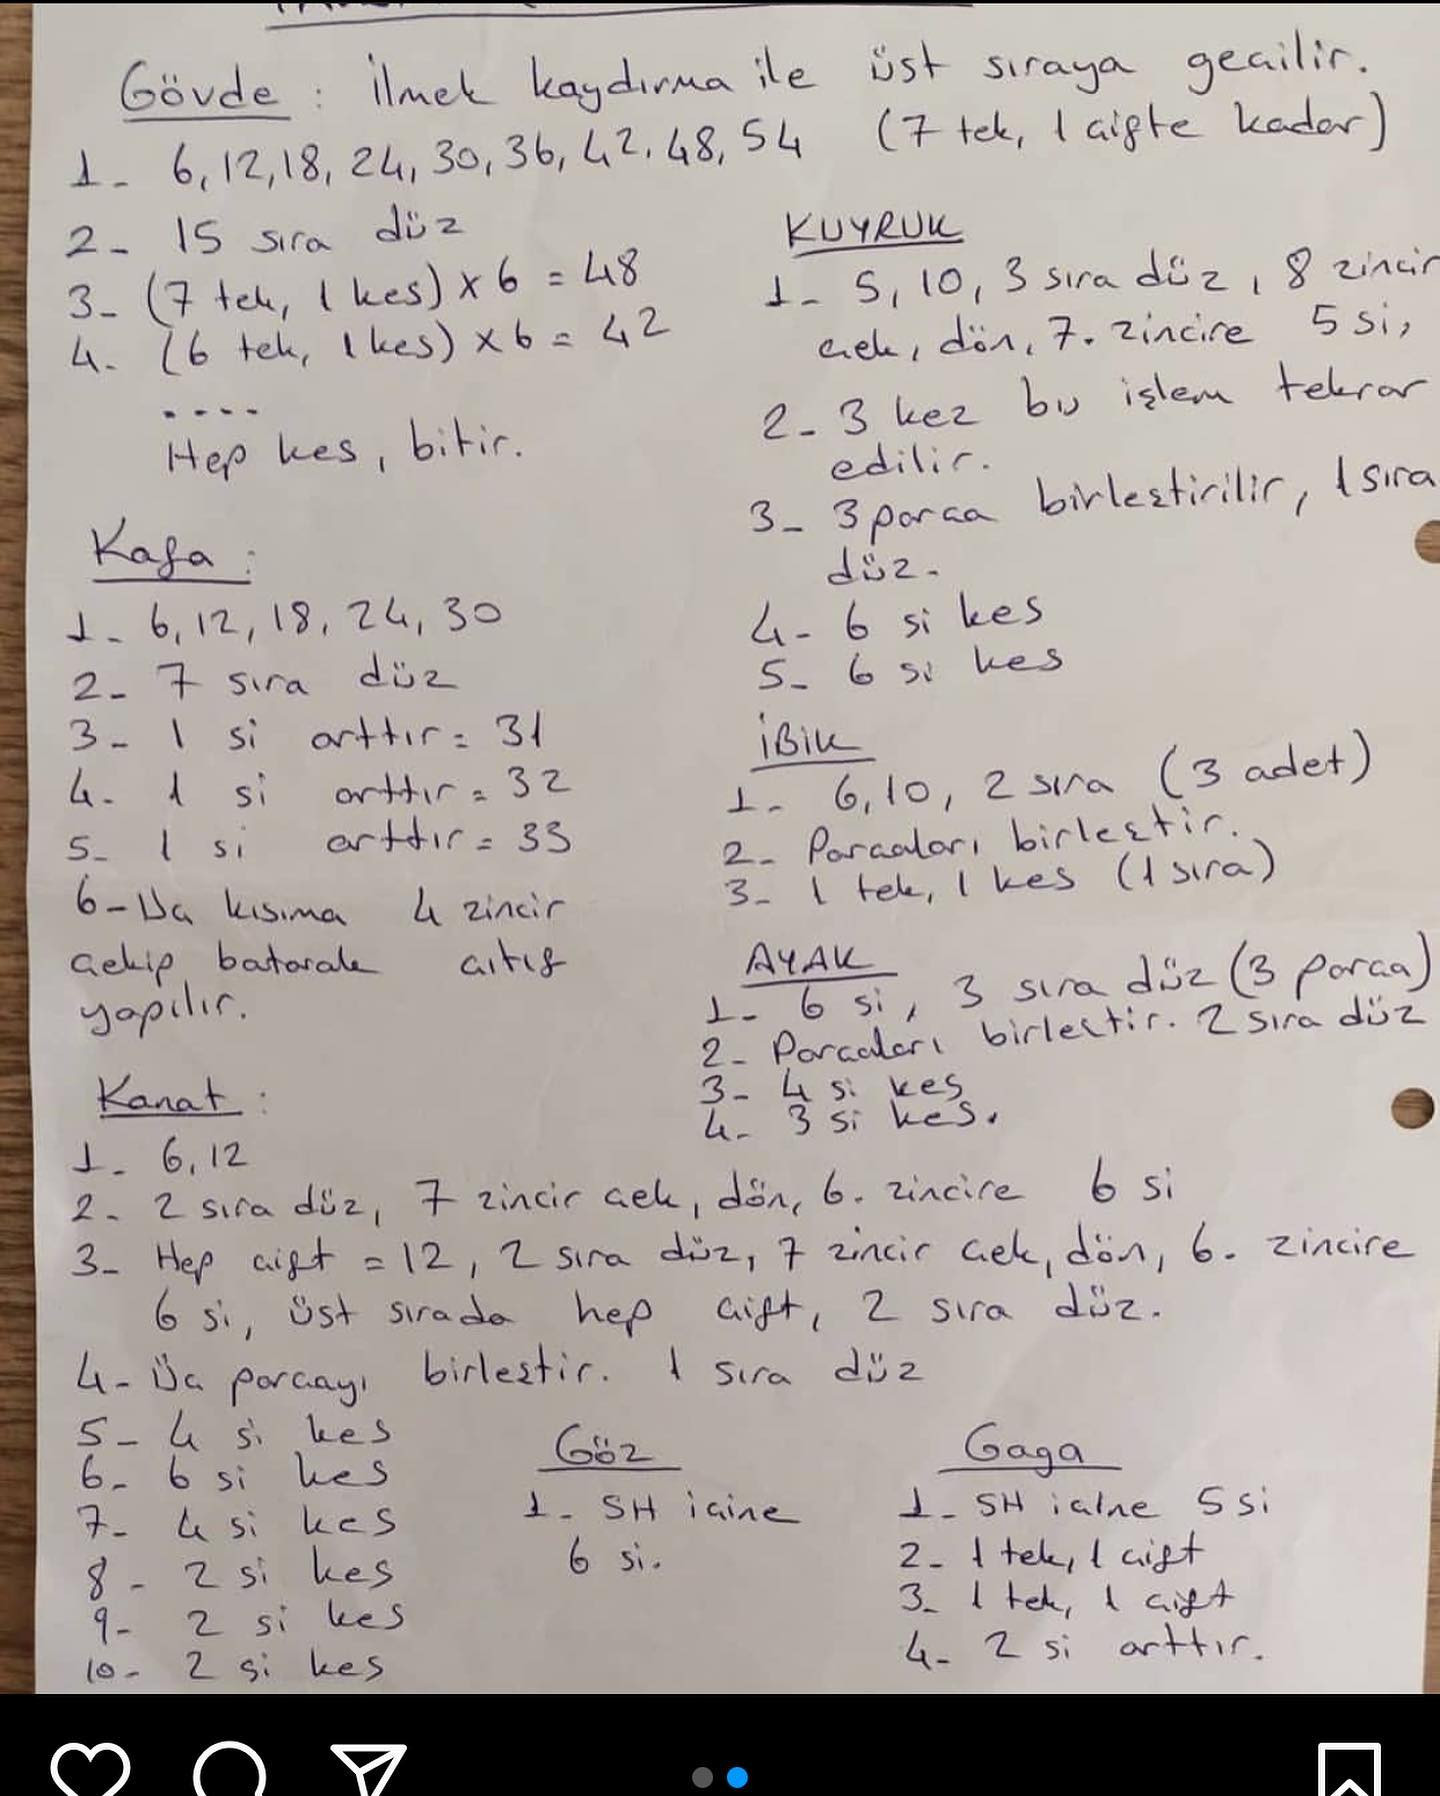 Gövde : İlmek kaydırma ile üst sıraya geçilir.
1- 6, 12, 18, 24, 30, 36, 42, 48, 54 (7 tek, 1 çifte kadar)
2- 15 sıra düz
3- (7 tek, 1 kes) x 6 = 48
4- (6 tek, 1 kes) x 6 = 42
....
Hep kes, bitir.
Kafa :
1- 6, 12, 18, 24, 30
2- 7 sıra düz
3- 1 si arttır = 31
4- 1 si arttır = 32
5- 1 si arttır = 33
6- Uç kısıma 4 zincir
çekip batarak çıtıf
yapılır.
Kanat :
1- 6, 12
2- 2 sıra düz, 7 zincir çek, dön, 6. zincire 6 si
3- Hep çift = 12, 2 sıra düz, 7 zincir çek, dön, 6. zincire
6 si, üst sırada hep çift, 2 sıra düz.
4- Üç parçayı birleştir. 1 sıra düz
5- 4 si kes
6- 6 si kes
7- 4 si kes
8- 2 si kes
9- 2 si kes
10- 2 si kes
KUYRUK
1- 5, 10, 3 sıra düz, 8 zincir
çek, dön, 7. zincire 5 si,
2- 3 kez bu işlem tekrar
edilir.
3- 3 parça birleştirilir, 1 sıra
düz.
4- 6 si kes
5- 6 si kes
İBİK
1- 6, 10, 2 sıra (3 adet)
2- Parçaları birleştir.
3- 1 tek, 1 kes (1 sıra)
AYAK
1- 6 si, 3 sıra düz (3 parça)
2- Parçaları birleştir. 2 sıra düz
3- 4 si kes
4- 3 si kes.
Göz
1- SH içine
6 si.
Gaga
1- SH içine 5 si
2- 1 tek, 1 çift
3- 1 tek, 1 çift
4- 2 si arttır.